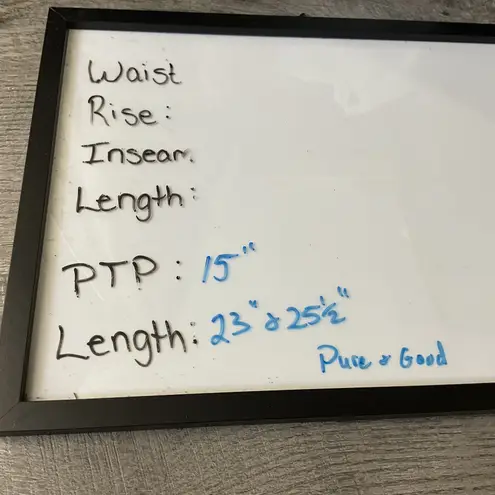 Waist
Rise:
Inseam.
Length:
PTP: 15"
Length: 23" & 25½"
Pure & Good